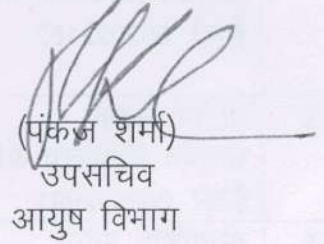 (पंकज शर्मा)
उपसचिव
आयुष विभाग